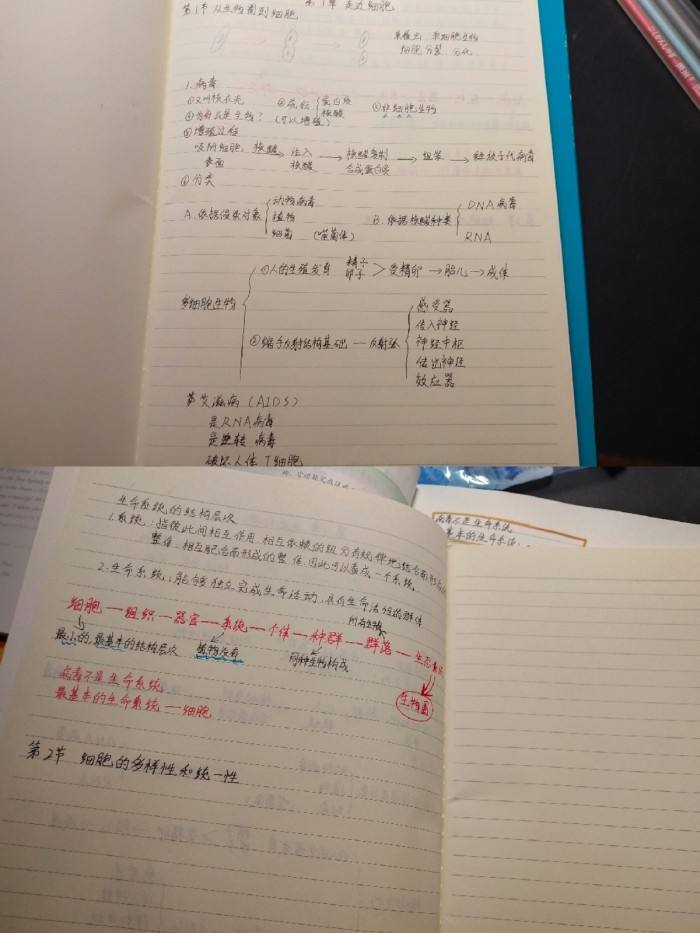 第1章 走近细胞
第1节 从生物圈到细胞
单细胞生物
细胞分裂 分化
1.病毒
②成分 蛋白质 核酸 ③非细胞生物
④为什么是生物？（可以增殖）
⑤增殖过程
吸附细胞 核酸 → 注入 → 核酸复制 → 组装 → 释放子代病毒
表面 核酸 合成蛋白质
⑥分类
A.依据侵染对象 动物病毒 植物 细菌（噬菌体）
B.依据核酸种类 DNA病毒 RNA
多细胞生物
①人的生殖发育 精子 卵子 > 受精卵 → 胎儿 → 成体
②缩手反射结构基础 — 反射弧
感受器
传入神经
神经中枢
传出神经
效应器
艾滋病（AIDS）
是RNA病毒
是逆转 病毒
破坏人体T细胞
生命系统的结构层次
1.系统：指彼此间相互作用、相互依赖的组分有规律地结合而形成的
整体，相互配合而形成的整体，因此可以看成一个系统。
2.生命系统：能够独立完成生命活动，具有生命活性的群体
所有生物
细胞—组织—器官—系统—个体—种群—群落—生态系统
最小的，最基本的结构层次 植物没有 同种生物构成
生物圈
病毒不是生命系统
最基本的生命系统—细胞
第2节 细胞的多样性和统一性
病毒不是生命系统
基本的生命系统：